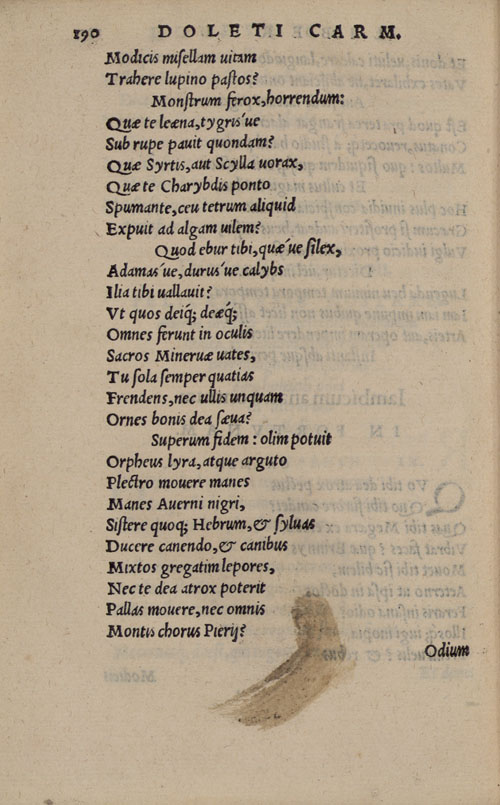 190 DOLETI CARM.
Modicis misellam uitam
Trahere lupino pastos?
Monstrum ferox, horrendum:
Quæ te leæna, tygris'ue
Sub rupe pauit quondam?
Quæ Syrtis, aut Scylla uorax,
Quæ te Charybdis ponto
Spumante, ceu tetrum aliquid
Expuit ad algam uilem?
Quod ebur tibi, quæ'ue silex,
Adamas'ue, durus'ue calybs
Ilia tibi uallauit?
Vt quos deiq; deæq́;
Omnes ferunt in oculis
Sacros Mineruæ uates,
Tu sola semper quatias
Frendens, nec ullis unquam
Ornes bonis dea sæua?
Superum fidem: olim potuit
Orpheus lyra, atque arguto
Plectro mouere manes
Manes Auerni nigri,
Sistere quoq; Hebrum, & syluas
Ducere canendo, & canibus
Mixtos gregatim lepores,
Nec te dea atrox poterit
Pallas mouere, nec omnis
Montis chorus Pierij?
Odium